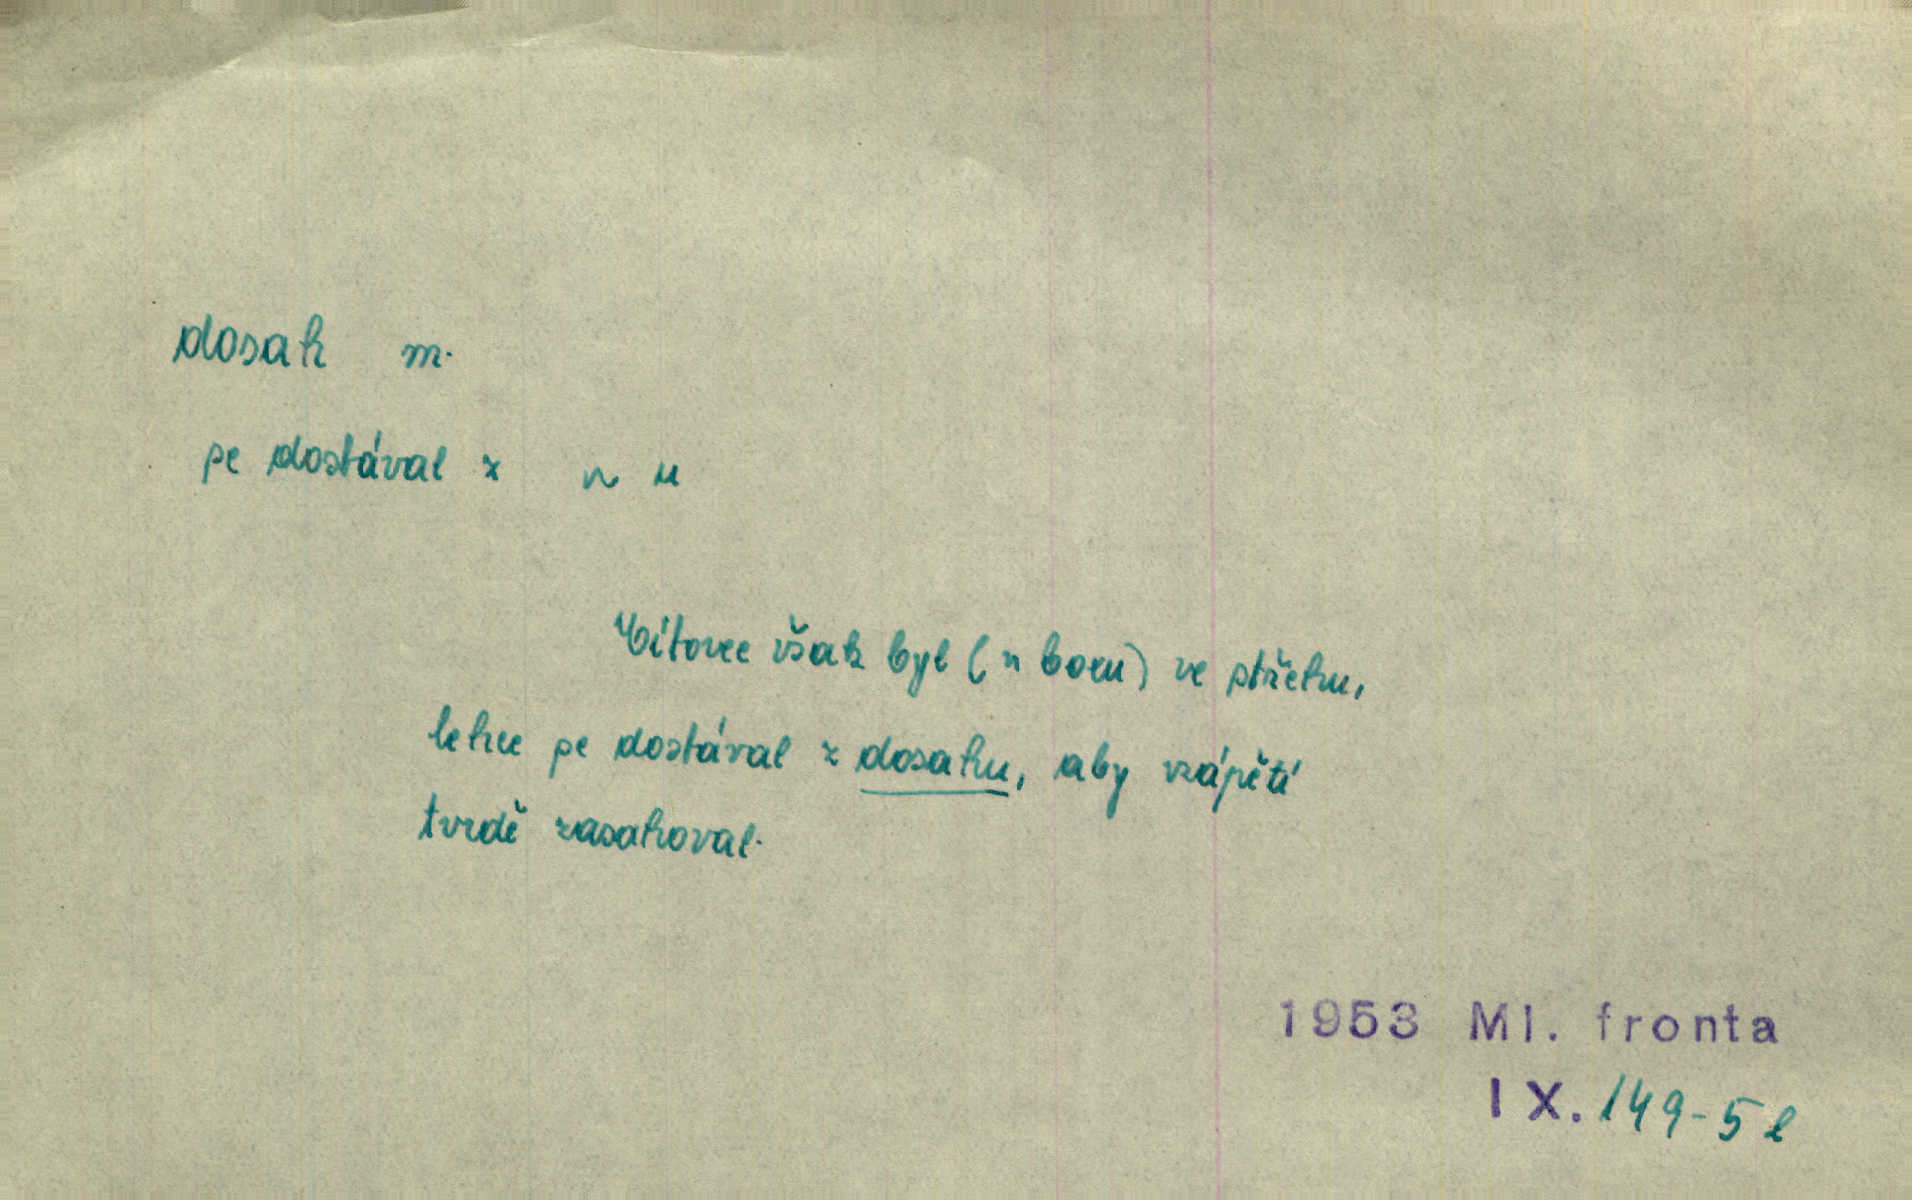 dosah m.
se dostával z ~ u
Vítovec však byl (v boxu) ve střehu,
lehce se dostával z dosahu, aby vzápětí
tvrdě zasahoval.
1953 Ml. fronta
IX. 149-5 e